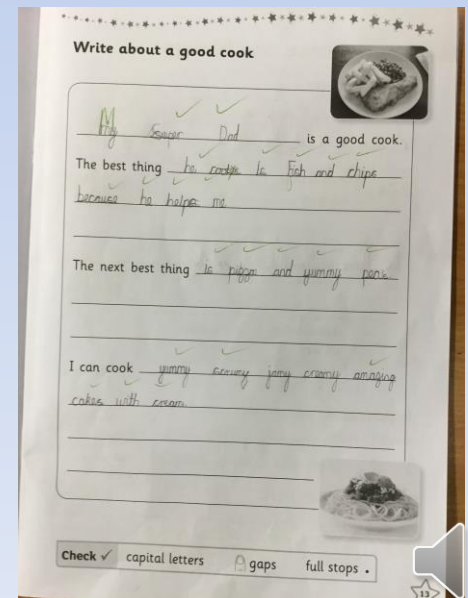 Write about a good cook
My Super Dad is a good cook.
The best thing he cooks is fish and chips
because he helps me
The next best thing is pizza and yummy
I can cook yummy creamy jamy creamy amazing
cakes with cream
Check ✓ capital letters gaps full stops .
13